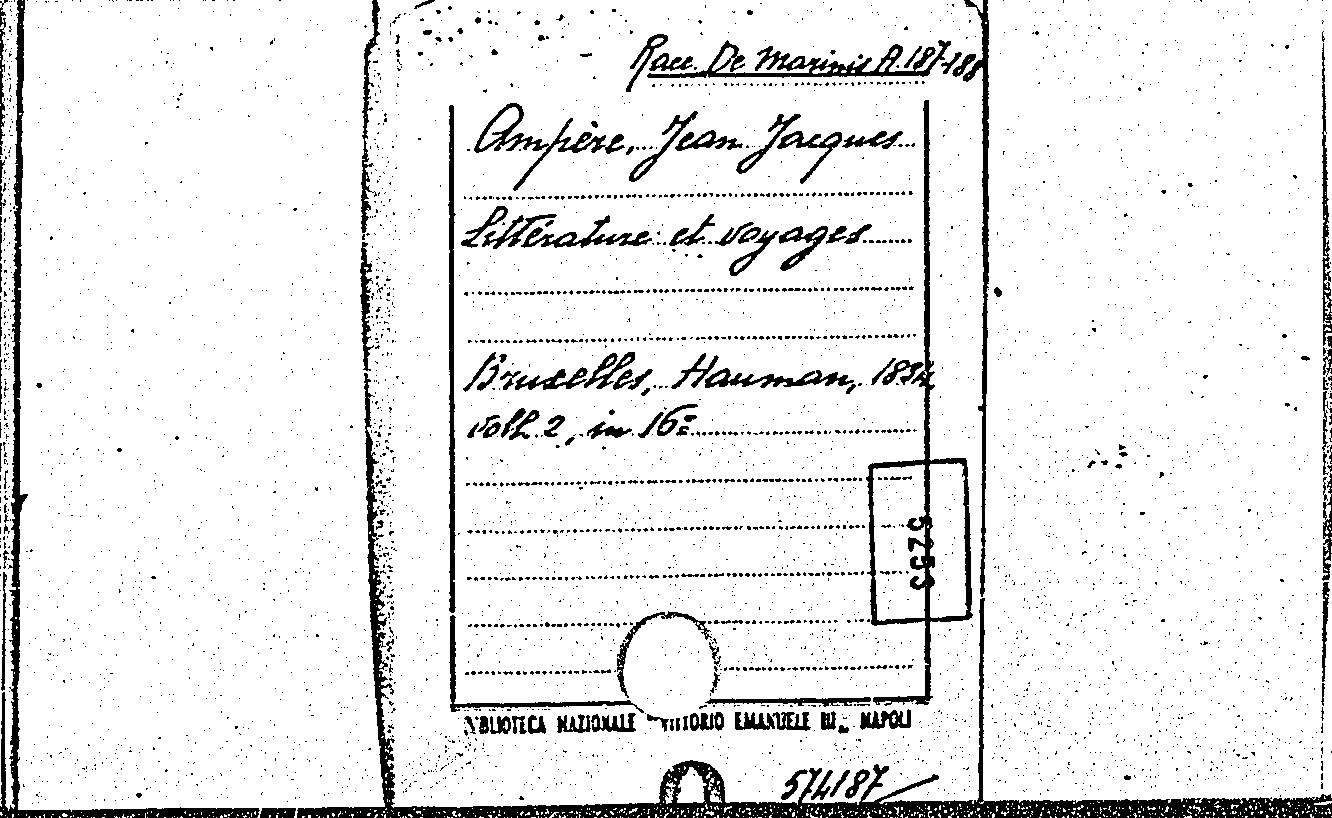 Racc. De Marinis A.187-188
Ampère, Jean Jacques
Littérature et voyages
Bruxelles, Hauman, 1834,
voll. 2, in 16º
5253
BIBLIOTECA NAZIONALE "VITTORIO EMANUELE III" NAPOLI
574187